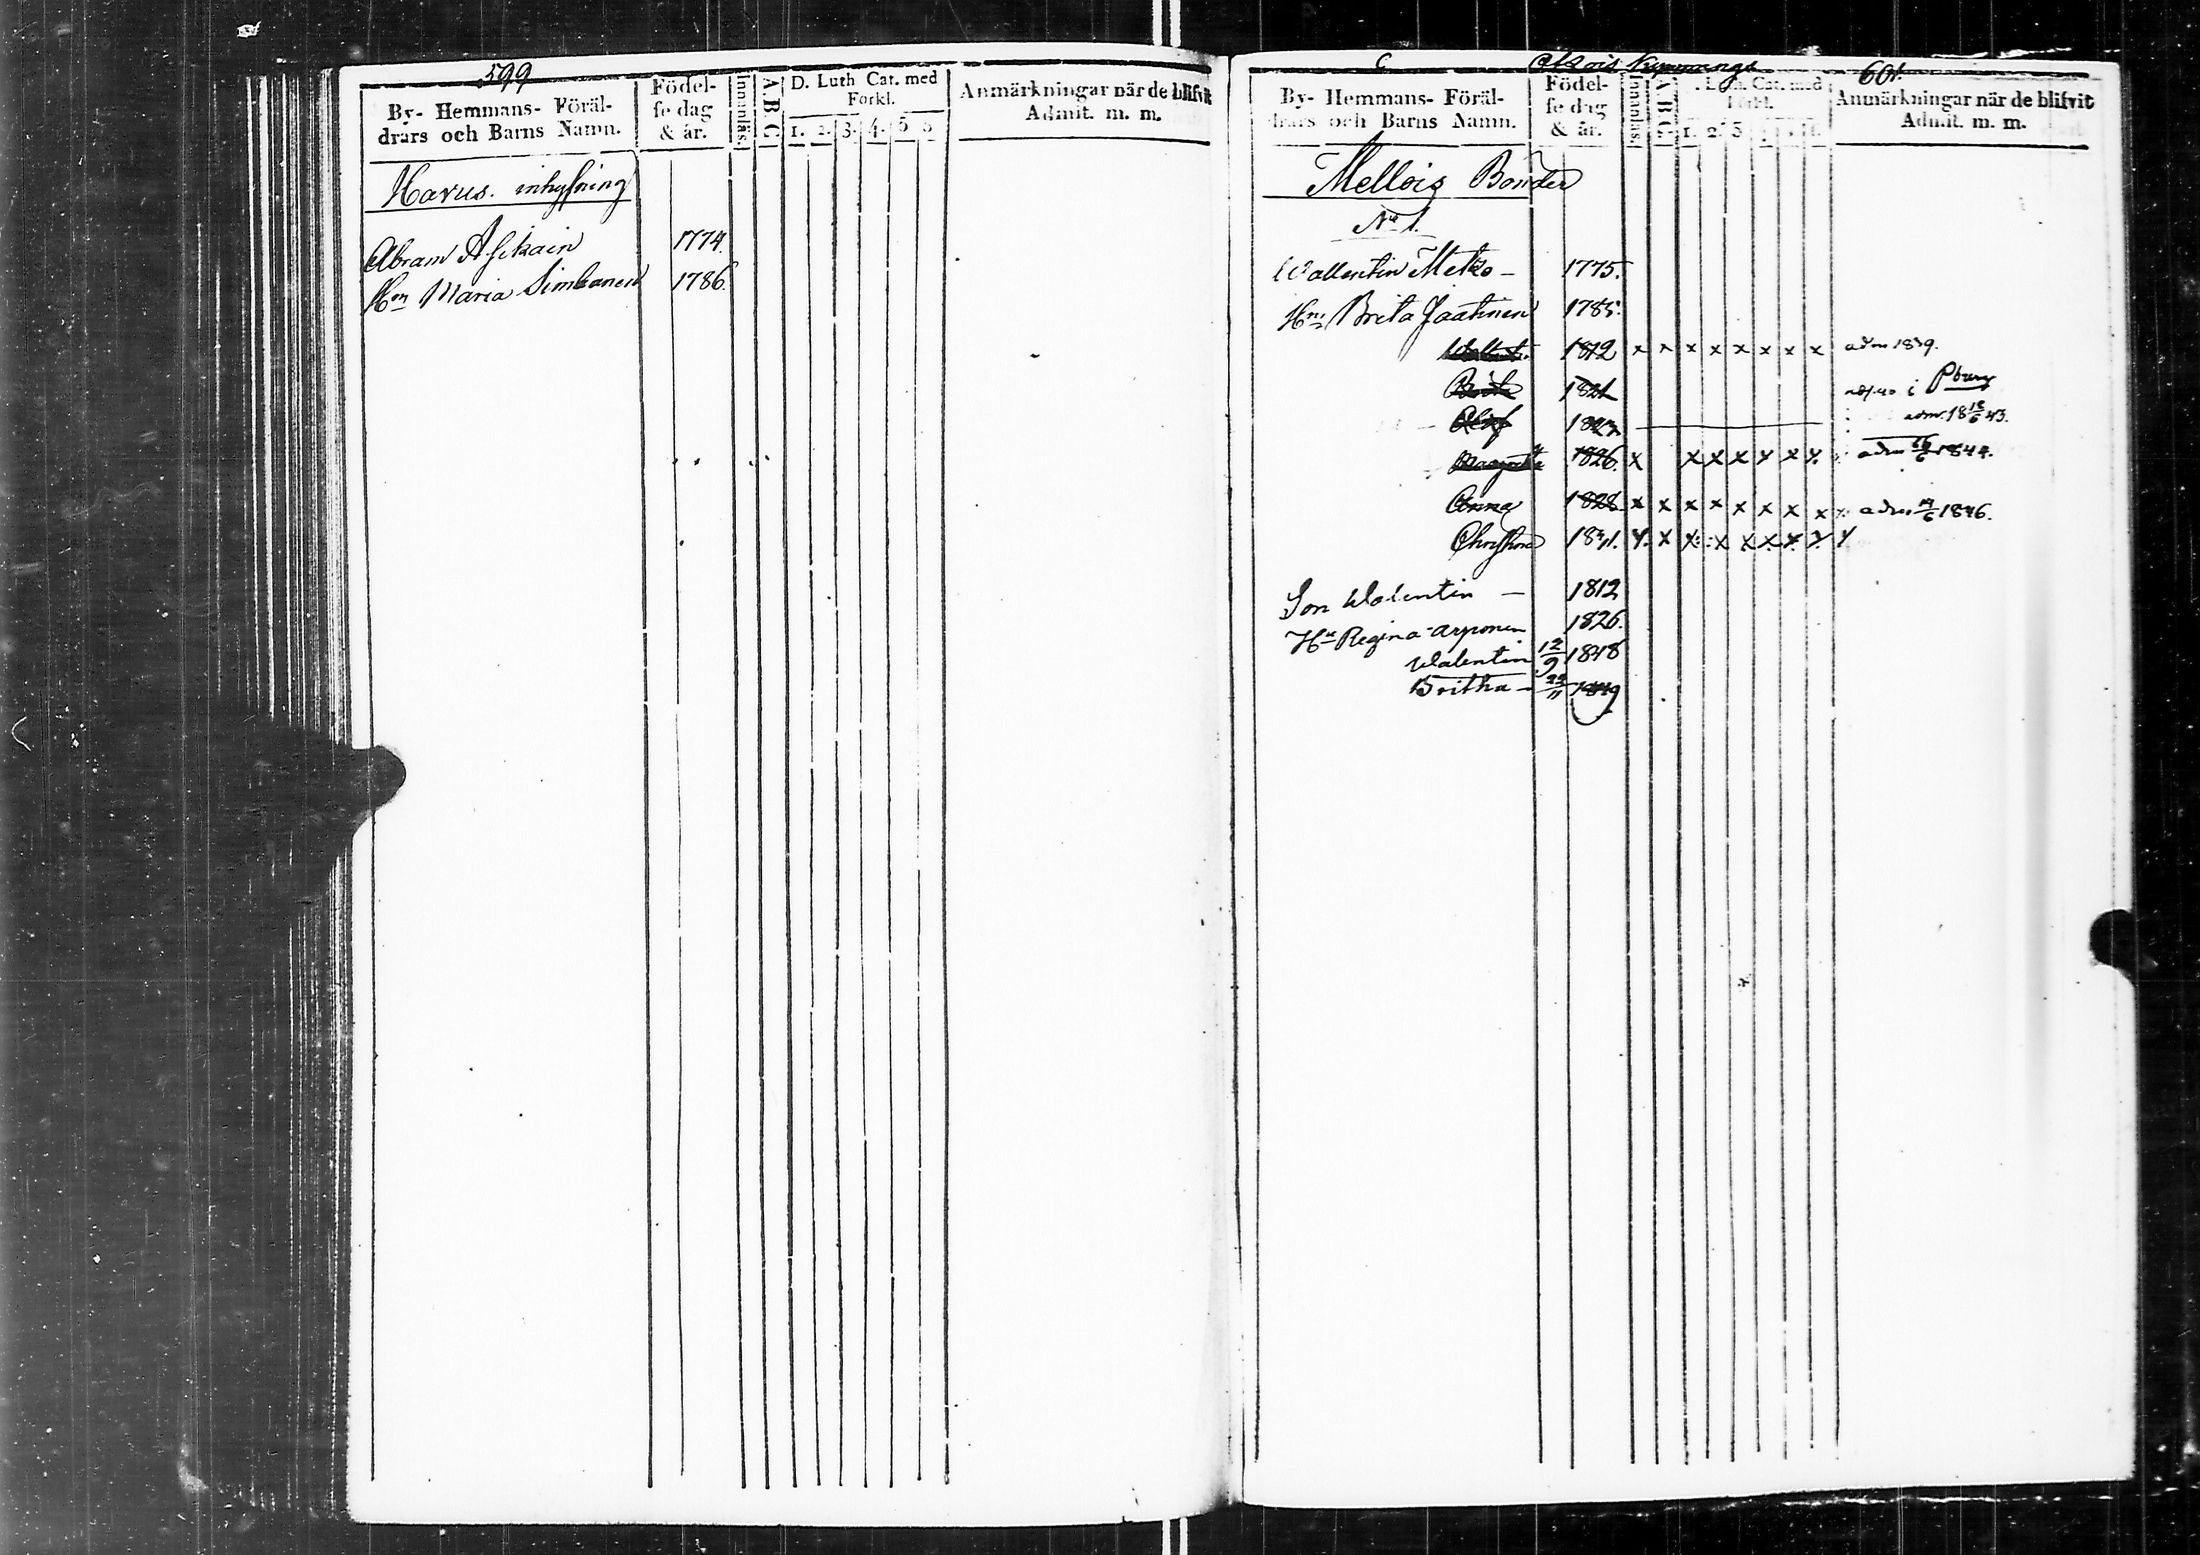 599
By- Hemmans- Föräl-
drars och Barns Namn.
Födel-
se dag
& år.
Innanläs.
A B C.
D. Luth Cat. med
Forkl.
1. 2. 3. 4. 5 5
Anmärkningar när de blifvit
Admit. m. m.
Havus. inhysning
Abram Asikain 1774.
Hn Maria Simbanen 1786.
601.
By- Hemmans- Föräl-
drars och Barns Namn.
Födel-
se dag
& år.
Innanläs.
A B C.
Luth. Cat. med
Forkl.
1. 2. 3
Anmärkningar när de blifvit
Admit. m. m.
Mellois Bönder
No 1.
Wallentin Metso – 1775.
Hn Brita Jaatinen 1785.
1812 x x x x x x x x adm 1839.
Brita 1821 i Pburg
1823 adm. 18 18/6 43.
Margareta 1826 x x x x x x x adm 1844.
Anna 1828 x x x x x x x x x adm 14/6 1846.
1831. x x x x x x x x x
Son Walentin – 1812
Hu Regina Arponen 1826.
Walentin 12/9 1848
Britha – 22/11 1849